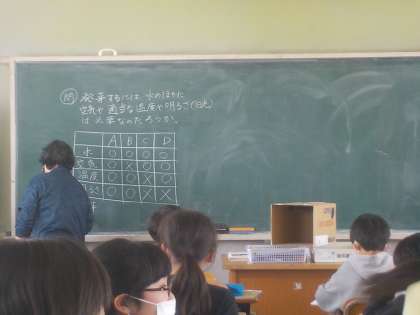 問 発芽するには 水のほかに
空気や 適当な 温度や 明るさ(日光)
は 必要なのだろうか。
A B C D
水 ○ ○ ○ ○
空気 ○ × ○ ○
温度 ○ ○ × ○
○ ○ × ×